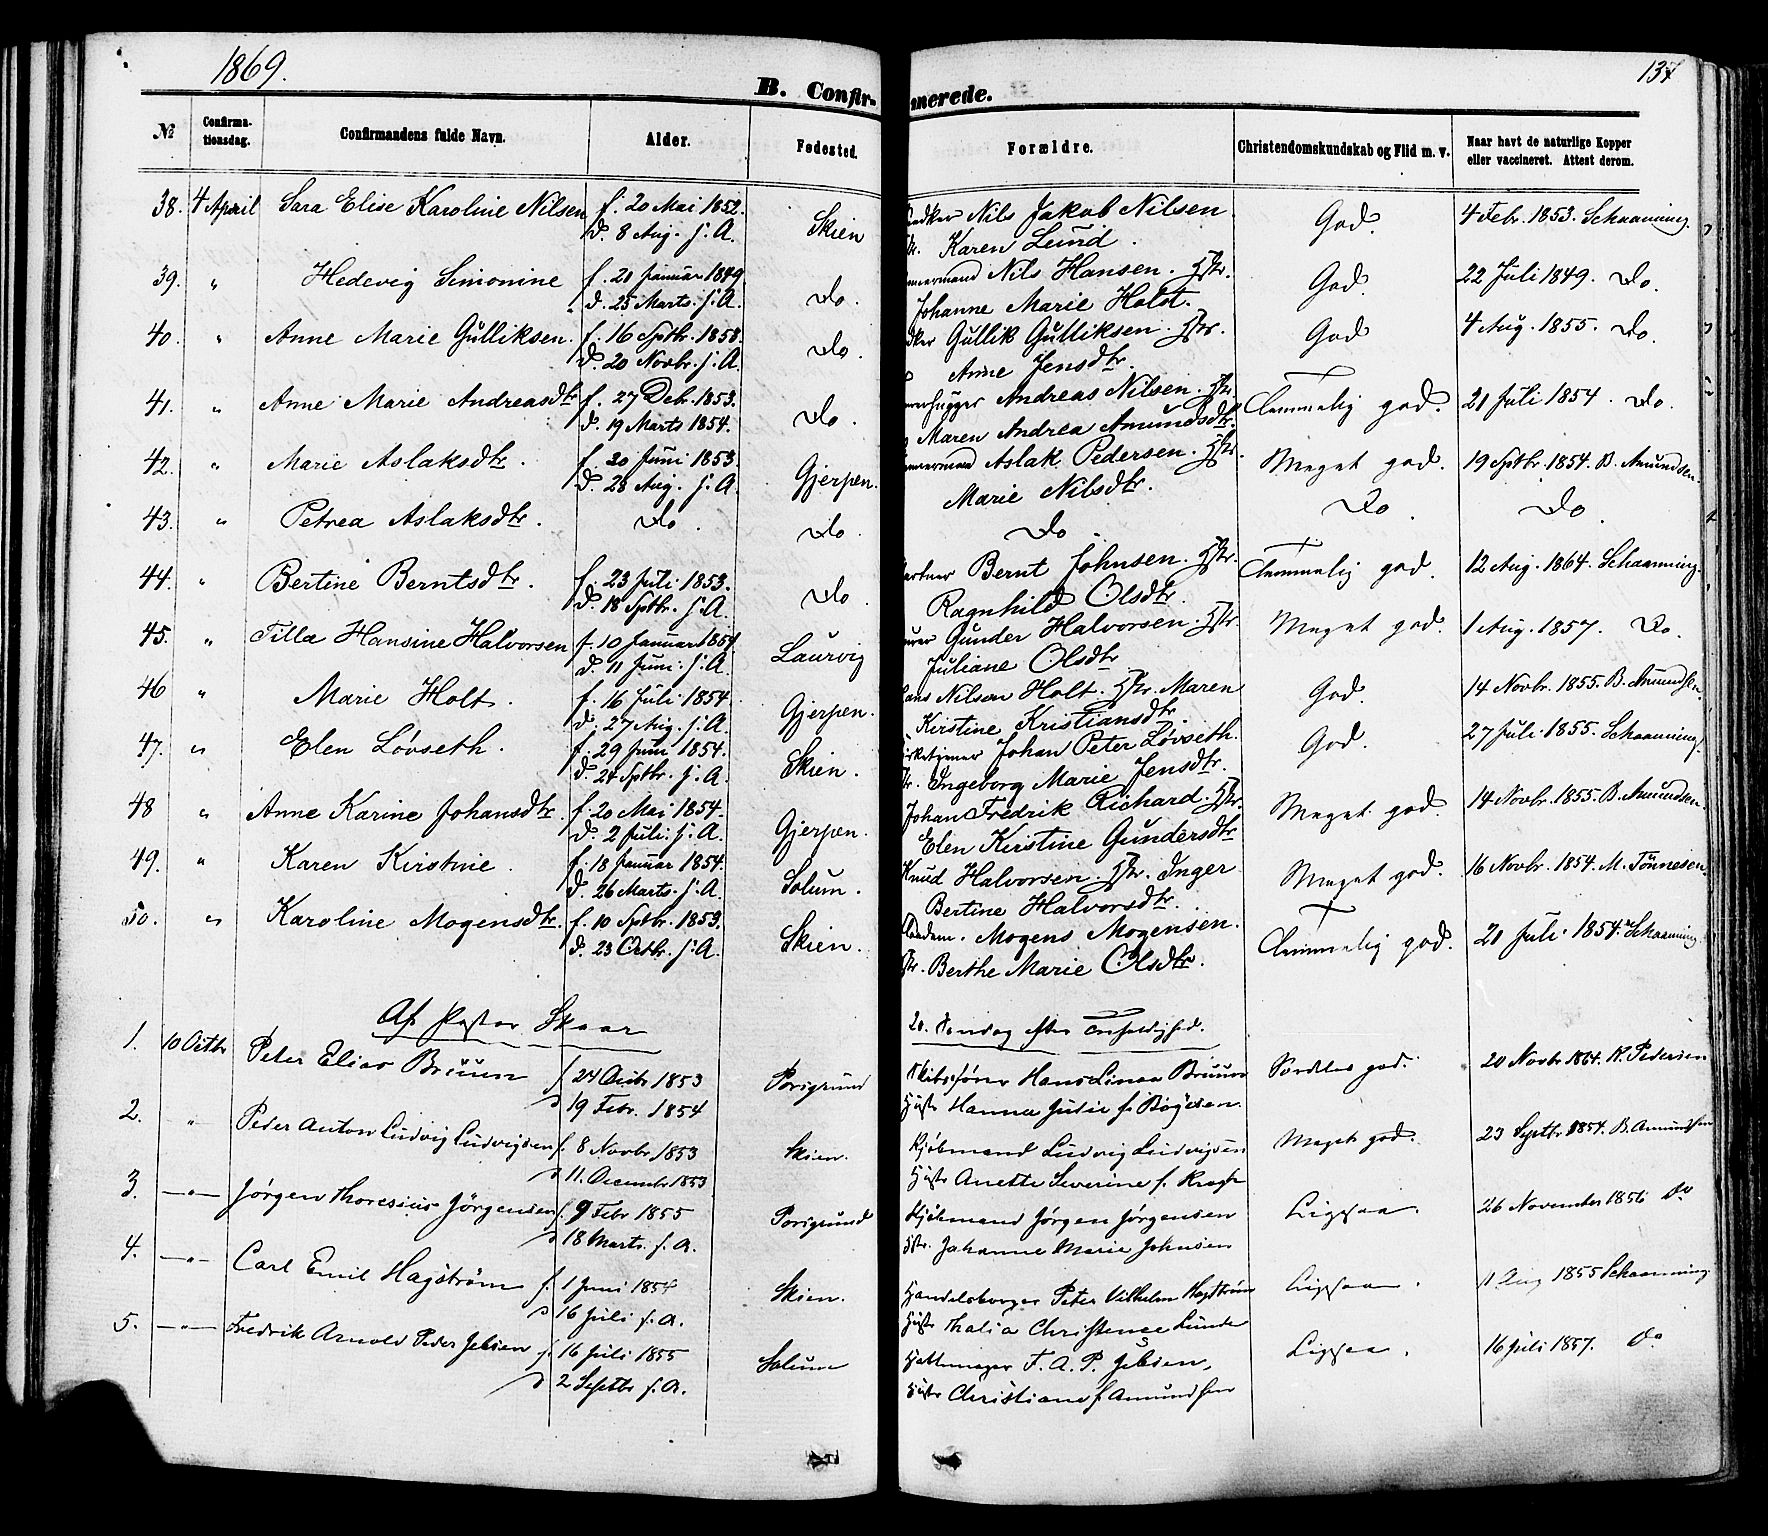 1869.
137
B. Confirmerede.
№ Confirmationsdag. Confirmandens fulde Navn. Alder. Fødested. Forældre. Christendomskundskab og Flid m. v. Naar havt de naturlige Kopper eller vaccineret. Attest derom.
38. 4 April Sara Elise Karoline Nilsen f. 20 Mai 1852. Skien Nils Jakob Nilsen God. 4 Febr. 1853. Schaanning.
d. 8 Aug. s. A. Karen Lund.
39. " Hedevig Simonine f. 20 Januar 1849 Do. Nils Hansen. Hstr. God. 22 Juli 1849. Do.
d. 25 Marts. s. A. Johanne Marie Holst.
40. " Anne Marie Gulliksen. f. 16 Sptbr. 1853. Do. Gullik Gulliksen. Hstr. God 4 Aug. 1855. Do.
d. 20 Novbr. s. A. Anne Jensdtr.
41. " Anne Marie Andreasdtr f. 27 Deb. 1853. Do. Andreas Nilsen. Hstr. Temmelig god. 21 Juli 1854. Do.
d. 19 Marts 1854. Maren Andrea Amundsdtr.
42. " Marie Aslaksdtr. f. 20 Juni 1853. Gjerpen. Aslak Pedersen. Hstr. Meget god. 19 Sptbr. 1854. B. Amundsen.
d. 28 Aug. s. A. Marie Nilsdtr.
43. " Petrea Aslaksdtr. Do. Do. Do. Do. Do.
44. " Bertine Berntsdtr. f. 23 Juli 1853. Do. Bernt Johnsen. Hstr. Temmelig god. 12 Aug. 1864. Schaanning.
d. 18 Sptbr. s. A. Ragnhild Olsdtr.
45. " Tilla Hansine Halvorsen f. 10 Januar 1854 Laurvig Gunder Halvorsen. Hstr Meget god. 1 Aug. 1857. Do.
d. 11 Juni. s. A. Juliane Olsdtr
46 " Marie Holt. f. 16 Juli 1854. Gjerpen. Nilsen Holt. Hstr. Maren God. 14 Novbr. 1855. B. Amundsen.
d. 27 Aug. s. A. Kirstine Kristiansdtr.
47. " Elen Løvseth. f. 29 Juni 1854. Skien. Johan Peter Løvseth. God. 27 Juli 1855. Schaanning.
d. 24 Sptbr. s. A. Ingeborg Marie Jensdtr.
48 " Anne Karine Johansdtr. f. 20 Mai 1854. Gjerpen. Johan Fredrik Richard. Hstr. Meget god. 14 Novbr. 1855. B. Amundsen.
d. 2 Juli. s. A. Elen Kirstine Gundersdtr
49. " Karen Kirstine. f. 18 Januar 1854. Solum. Knud Halvorsen. Hstr. Inger Meget god. 16 Novbr. 1854. M. Tønnesen.
d. 26 Marts. s. A. Bertine Halvorsdtr.
50. " Karoline Mogensdtr. f. 10 Sptbr. 1853. Skien. Mogens Mogensen. Temmelig god. 21 Juli 1854. Schaanning
d. 23 Octbr. s. A. Berthe Marie Olsdtr.
Af Pastor Skaar 20. Søndag efter Trefoldighed.
1. 10 Octbr Peter Elias Bruun f 24 Octbr 1853 Porsgrund Skibsfører Hans Linaa Bruun Særdeles god. 20 Novbr 1864. K. Pedersen
d 19 Febr. 1854 Hustr Hanna Julie f. Bøyesen.
2. " Peder Anton Ludvig Ludvigsen f. 8 Novbr 1853 Skien. Kjøbmand Ludvig Ludvigsen Meget god. 23 Septbr 1854. B. Amundsen
d 11. December 1853 Hustr Anette Severine f. Krogh
3. " Jørgen Thoresius Jørgensen f. 9 Febr 1855 Porsgrund Kjøbmand Jørgen Jørgensen Ligesaa. 26 November 1856 do
d 18 Marts. s. A. Hstr. Johanne Marie Johnsen
4. " Carl Emil Hagstrøm f. 1 Juni 1854 Skien. Handelsborger Peter Vilhelm Hagstrøm Ligesaa. 11 Aug 1855 Schaanning
d 16 Juli s. A. Hustr Thalia Christence Lunde
5. " Fredrik Arnold Peder Jebsen f. 16 Juli 1855 Solum Hattemager F. A. P. Jebsen, Ligesaa. 16 Juli 1857. do
d 2 Septbr s. A. Hustr Christiane f. Amundsen